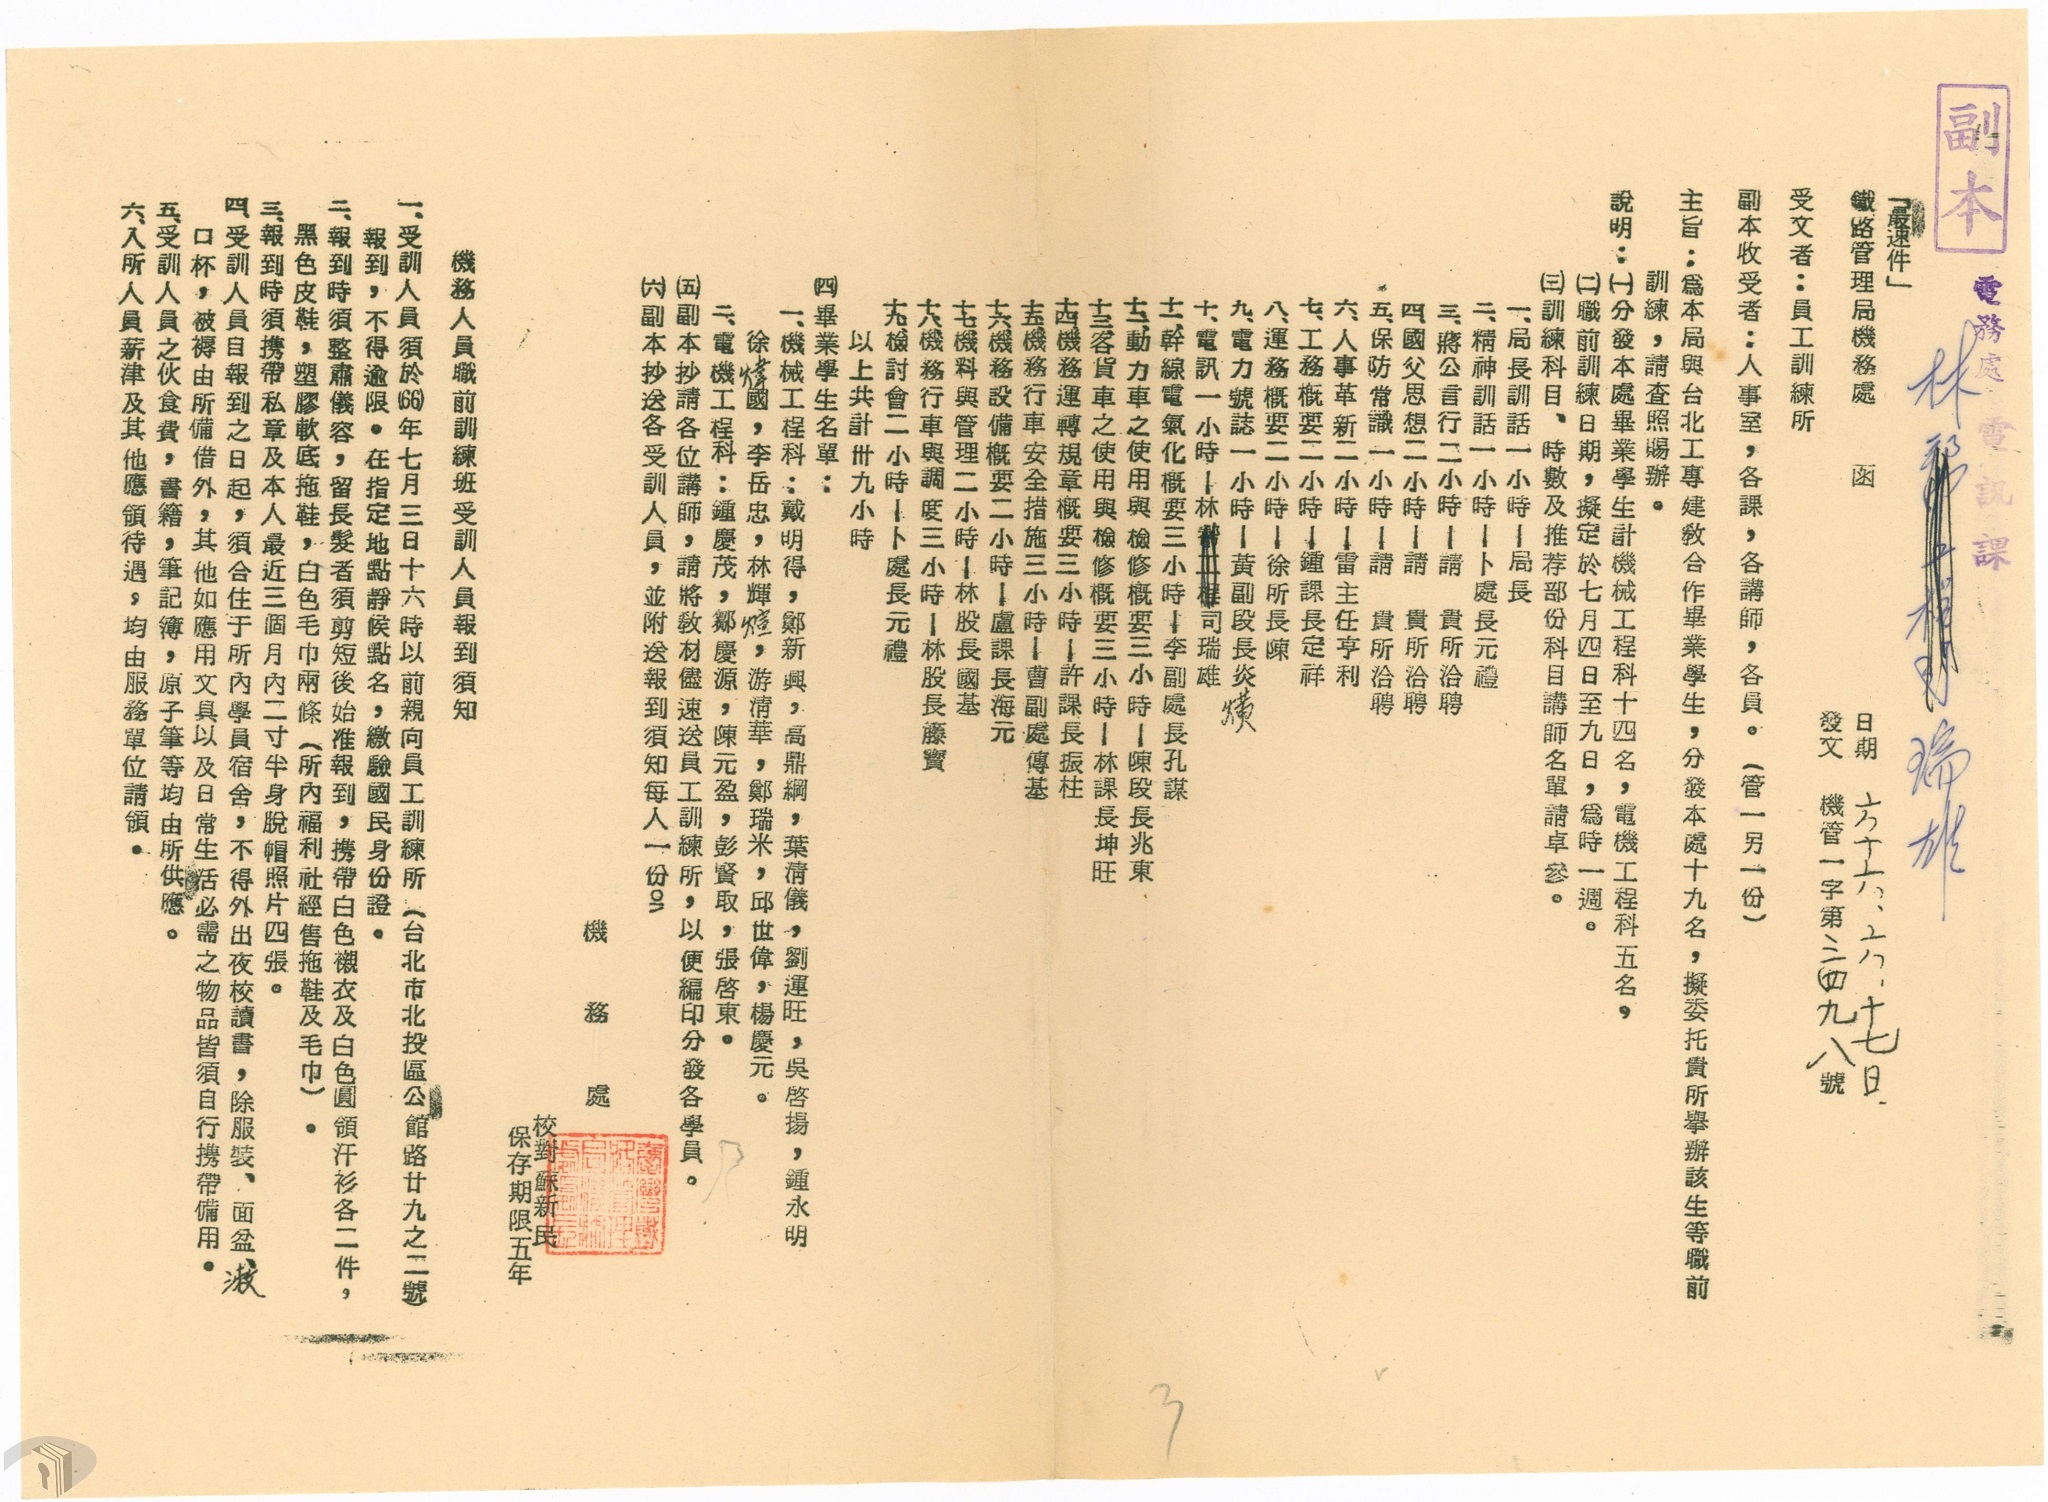 副本
電務處電訊課
林
瑞雄
「最速件」
鐵路管理局機務處　函
日期　六六、六、十七日
發文　機管一字第三四九八號
受文者：員工訓練所
副本收受者：人事室，各課，各講師，各員。（管一另一份）
主旨：為本局與台北工專建教合作畢業學生，分發本處十九名，擬委托貴所舉辦該生等職前
訓練，請查照賜辦。
說明：㈠分發本處畢業學生計機械工程科十四名，電機工程科五名，
㈡職前訓練日期，擬定於七月四日至九日，為時一週。
㈢訓練科目、時數及推荐部份科目講師名單請卓參。
一、局長訓話一小時—局長
二、精神訓話一小時—卜處長元禮
三、蔣公言行二小時—請　貴所洽聘
四、國父思想二小時—請　貴所洽聘
五、保防常識一小時—請　貴所洽聘
六、人事革新二小時—雷主任亨利
七、工務概要二小時—鍾課長定祥
八、運務概要二小時—徐所長陳
九、電力號誌一小時—黃副段長炎煌
十、電訊一小時—林司瑞雄
十一、幹線電氣化概要三小時—李副處長孔謀
十二、動力車之使用與檢修概要三小時—陳段長兆東
十三、客貨車之使用與檢修概要三小時—林課長坤旺
十四、機務運轉規章概要三小時—許課長振柱
十五、機務行車安全措施三小時—曹副處傳基
十六、機務設備概要二小時—盧課長海元
十七、機料與管理二小時—林股長國基
十八、機務行車與調度三小時—林股長藤寶
十九、檢討會二小時—卜處長元禮
以上共計卅九小時
㈣畢業學生名單：
一、機械工程科：戴明得，鄭新興，高鼎綱，葉清儀，劉運旺，吳啓揚，鍾永明
徐煒國，李岳忠，林輝煊，游清華，鄭瑞米，邱世偉，楊慶元。
二、電機工程科：鍾慶茂，鄒慶源，陳元盈，彭賢取，張啓東。
㈤副本抄請各位講師，請將教材儘速送員工訓練所，以便編印分發各學員。
㈥副本抄送各受訓人員，並附送報到須知每人一份。
機務處
校對蘇新民
保存期限五年
機務人員職前訓練班受訓人員報到須知
一、受訓人員須於(66)年七月三日十六時以前親向員工訓練所（台北市北投區公館路廿九之二號）
報到，不得逾限。在指定地點靜候點名，繳驗國民身份證。
二、報到時須整肅儀容，留長髮者須剪短後始准報到，携帶白色襯衣及白色圓領汗衫各二件，
黑色皮鞋，塑膠軟底拖鞋，白色毛巾兩條（所內福利社經售拖鞋及毛巾）。
三、報到時須携帶私章及本人最近三個月內二寸半身脫帽照片四張。
四、受訓人員自報到之日起，須合住于所內學員宿舍，不得外出夜校讀書，除服裝、面盆、漱
口杯，被褥由所備借外，其他如應用文具以及日常生活必需之物品皆須自行携帶備用。
五、受訓人員之伙食費，書籍，筆記簿，原子筆等均由所供應。
六、入所人員薪津及其他應領待遇，均由服務單位請領。
3